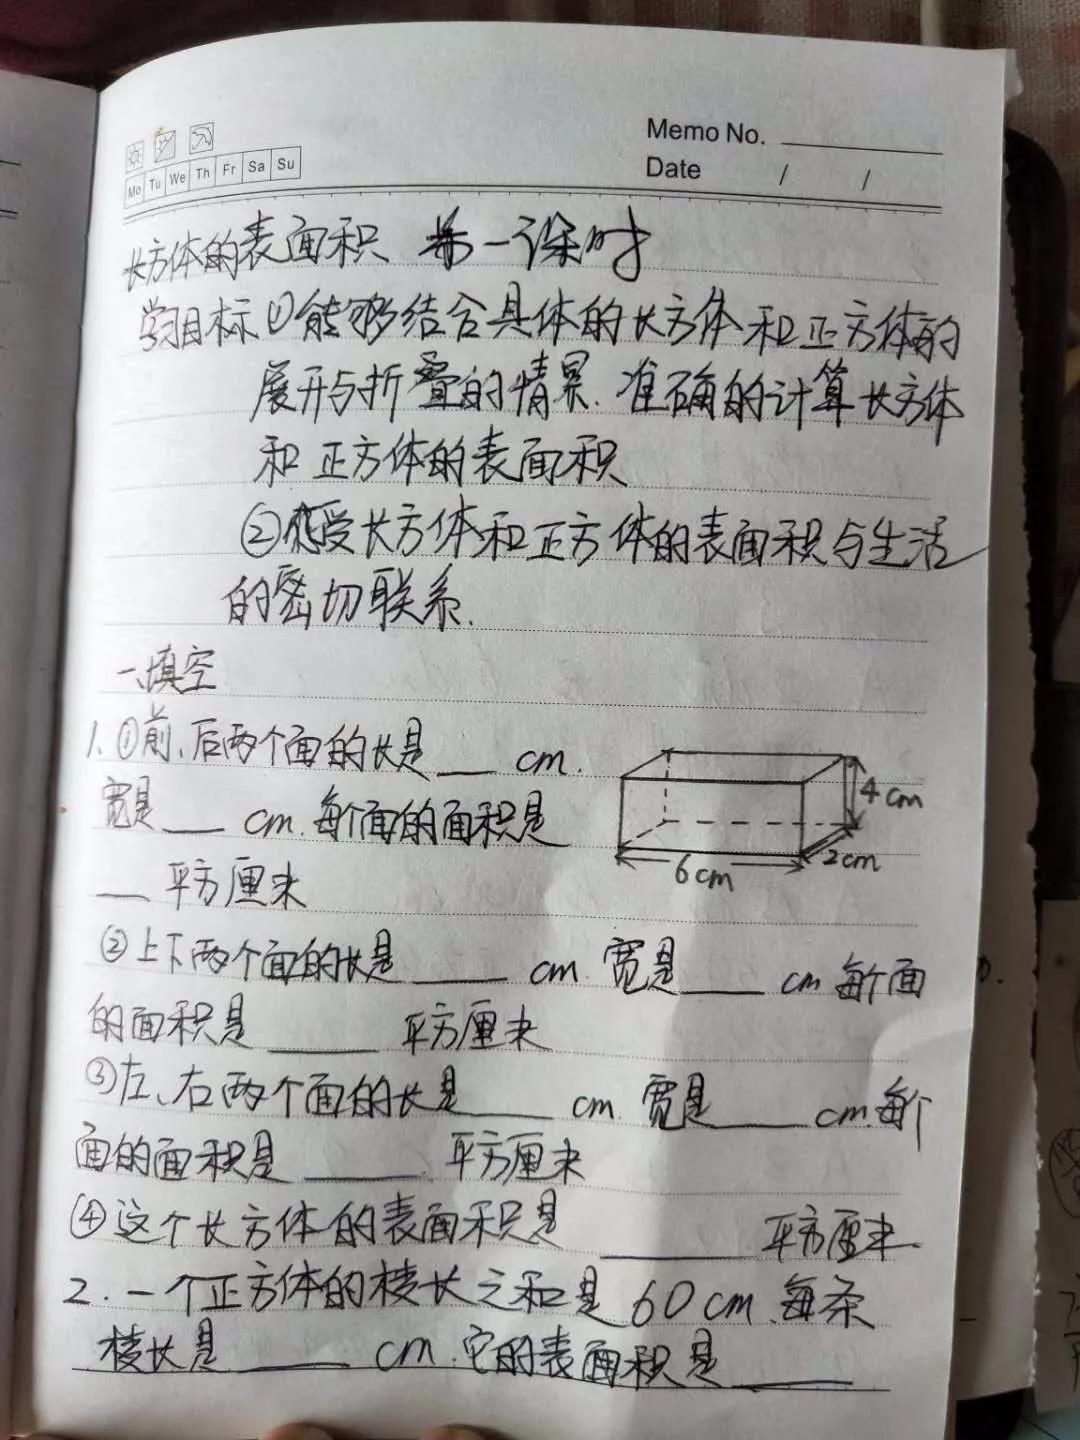 Memo No.
Mo Tu We Th Fr Sa Su
Date / /
长方体的表面积 第一课时
学习目标①能够结合具体的长方体和正方体的
展开与折叠的情景.准确的计算长方体
和正方体的表面积
②感受长方体和正方体的表面积与生活
的密切联系.
一、填空
1.①前、后两个面的长是___cm.
宽是___cm.每个面的面积是
___平方厘米
4cm
2cm
6cm
②上下两个面的长是____cm.宽是____cm每个面
的面积是____平方厘米
③左、右两个面的长是____cm.宽是____cm.每个
面的面积是____.平方厘米
④这个长方体的表面积是____平方厘米.
2.一个正方体的棱长之和是60cm.每条
棱长是____cm.它的表面积是____